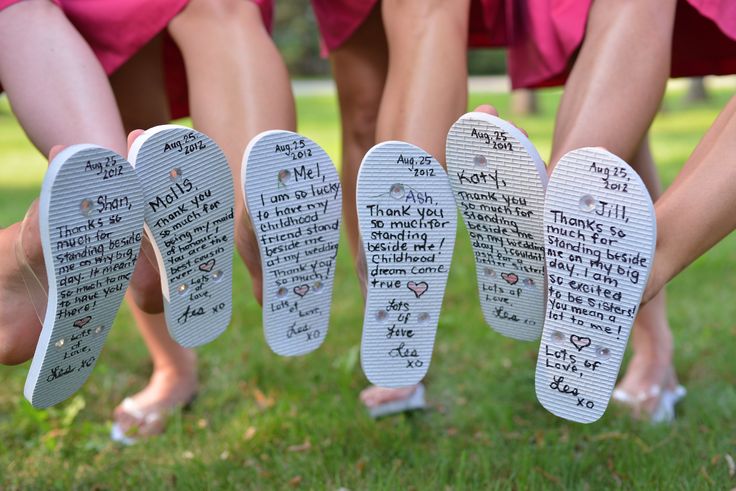 Aug.25
2012
Shan,
Thanks so
much for
standing beside
me on my big
day. It means
so much to me
to have you
there!
Lots of
Love,
Les xo
Aug.25
2012
Molls
Thank you
so much for
being my maid
of honour!
You are the
best cousin
ever
Lots
of
Love,
Les xo
Aug.25,
2012
Mel,
I am so lucky
to have my
childhood
friend stand
beside me
at my wedding
Thank you
so much!
Lots of
Love,
Les xo
Aug.25,
2012
Ash,
Thank you
so much for
standing
beside me!
Childhood
dream come
true
Lots
of
Love
Les xo
Aug.25,
2012
Katy,
Thank you
so much for
standing
beside me
on my wedding
day. I couldn't
ask for
Lots
of
Love,
Les xo
Aug.25,
2012
Jill,
Thanks so
much for
standing beside
me on my big
day. I am
so excited
to be Sisters!
You mean a
lot to me!
Lots
of
Love
Les
xo